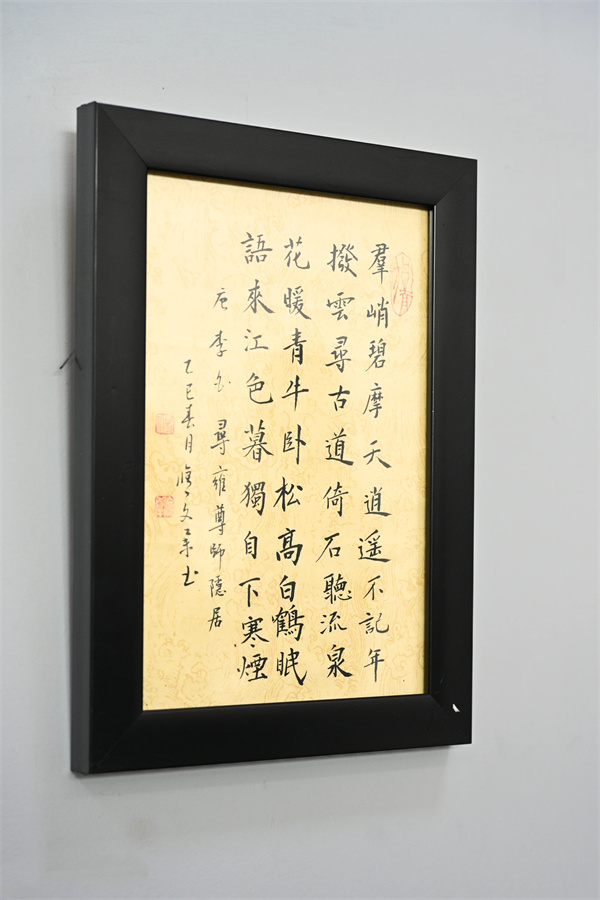 羣峭碧摩天逍遥不記年
撥雲尋古道倚石聽流泉
花暖青牛卧松高白鶴眠
語來江色暮獨自下寒煙
唐李白 尋雍尊師隱居
乙巳春月 文 书